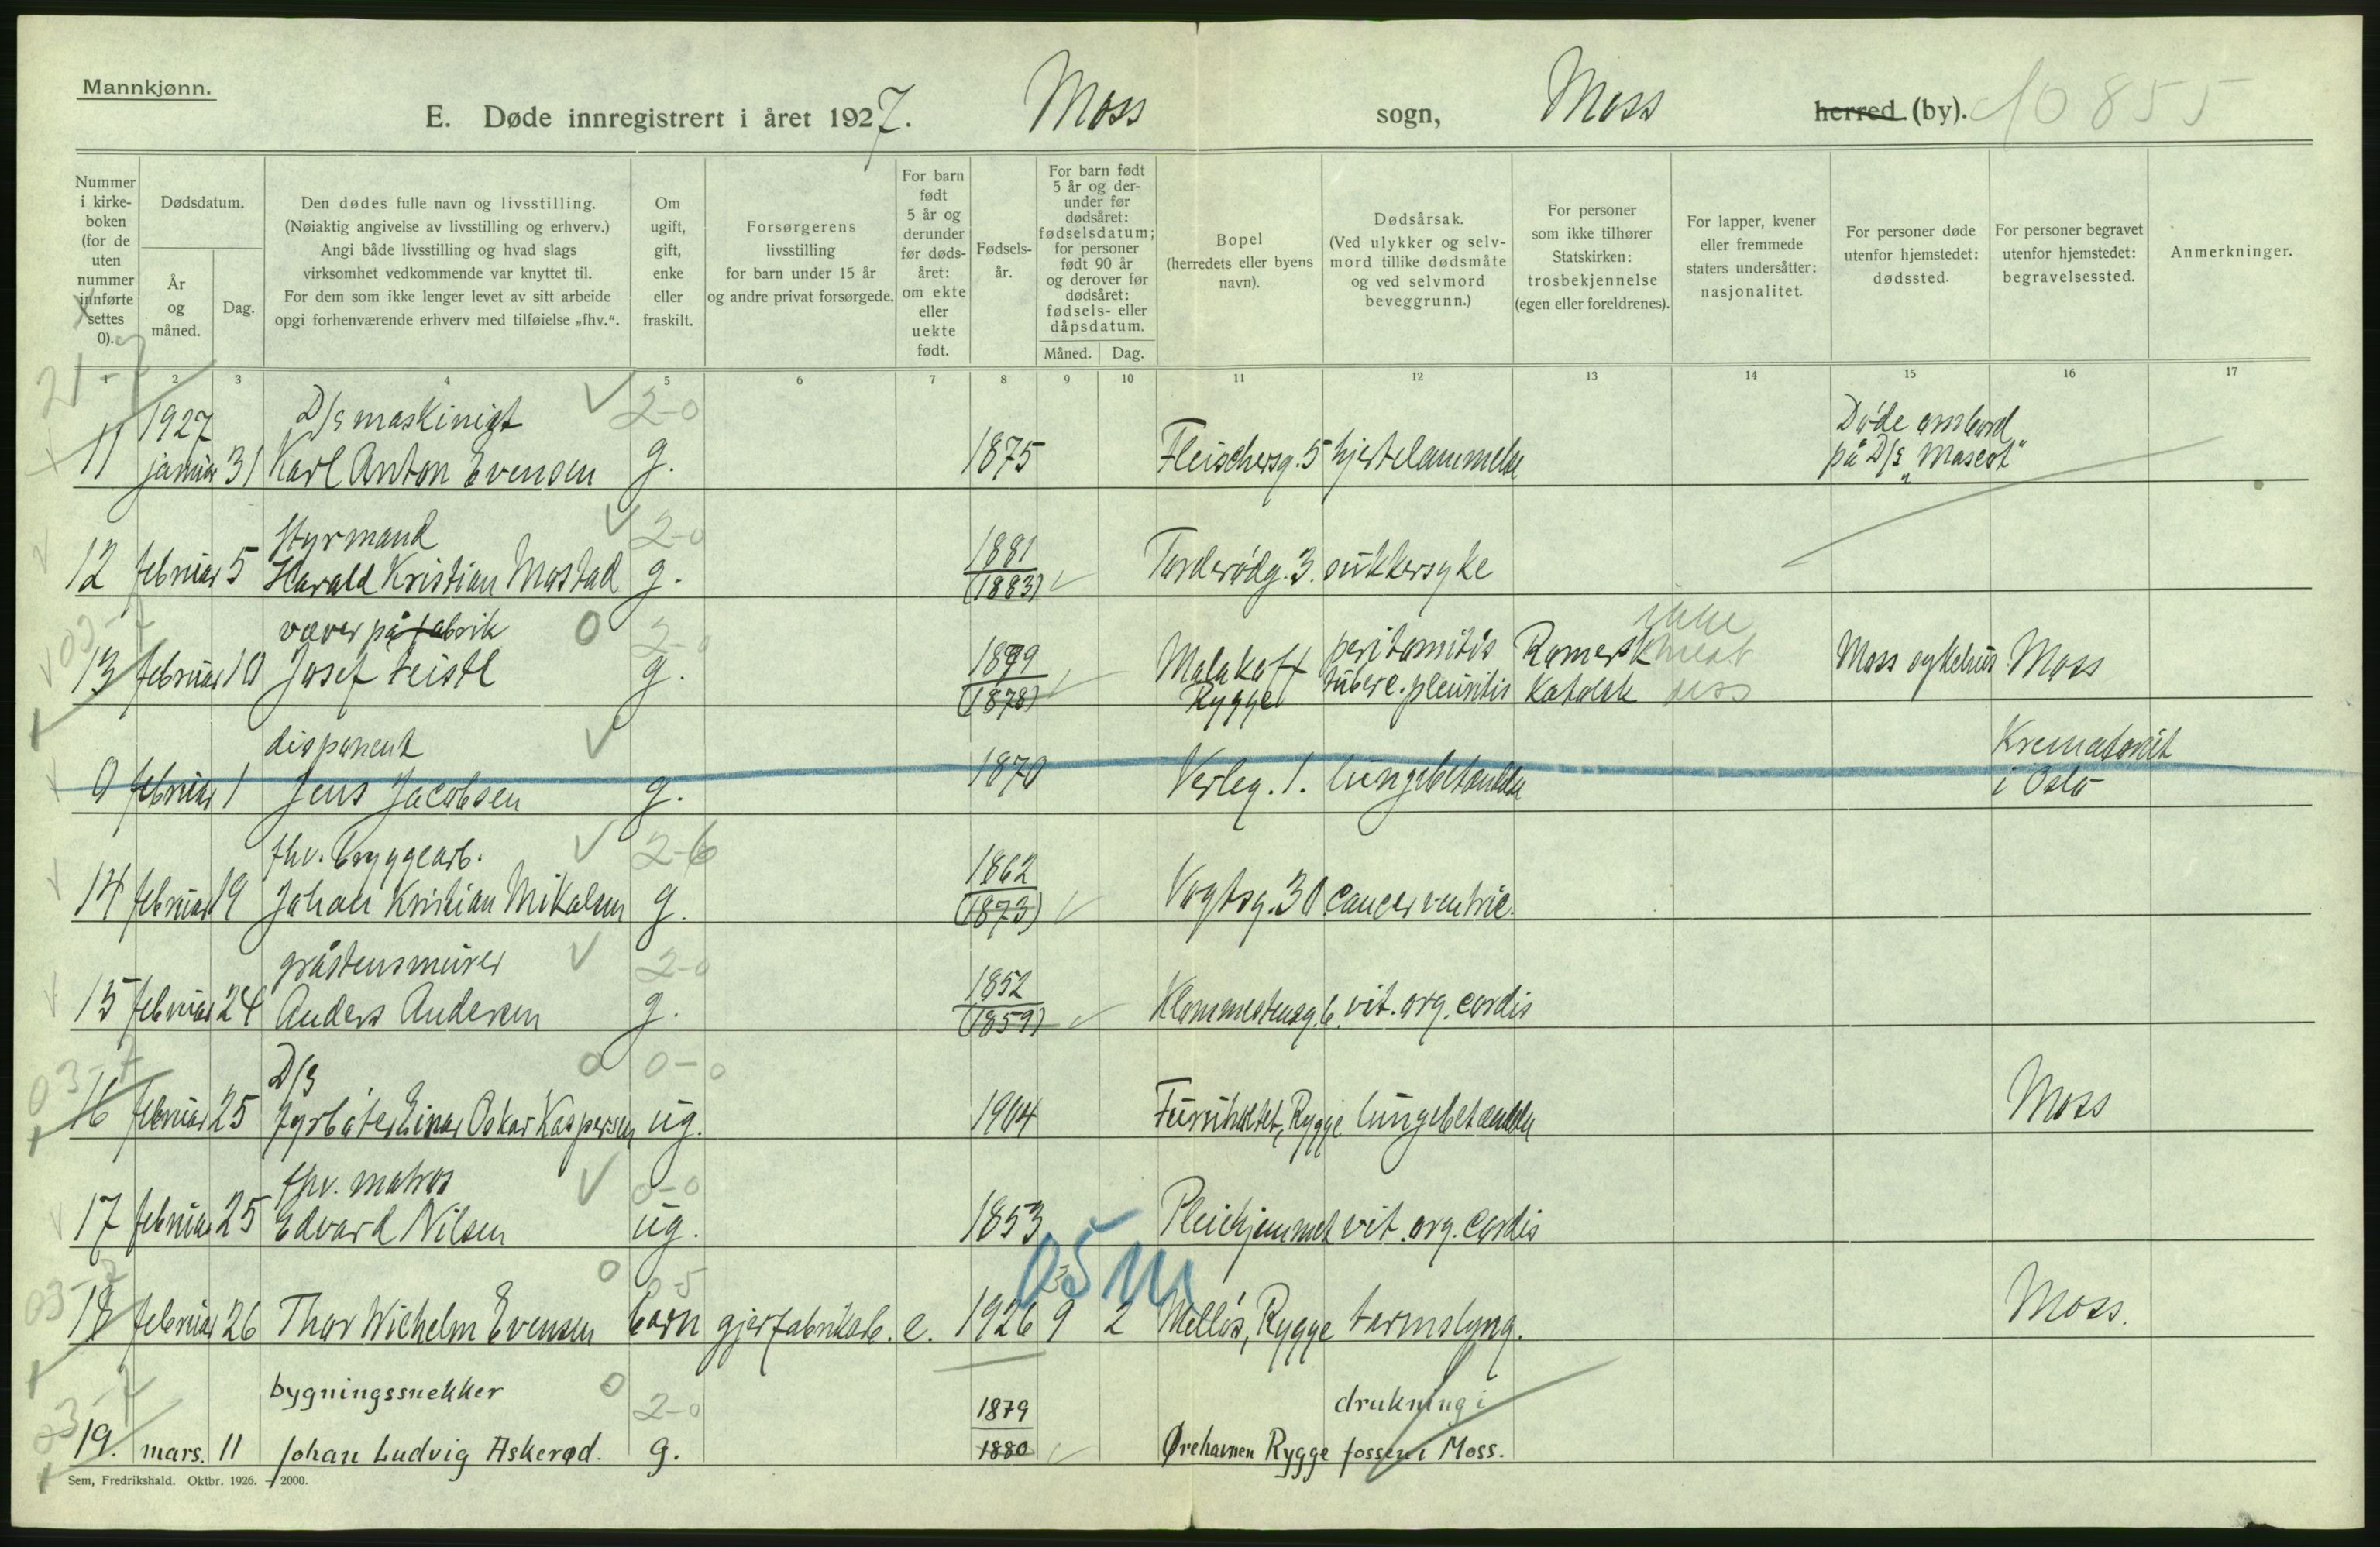 Mannkjønn.
E. Døde innregistrert i året 1927. Moss sogn, Moss herred (by). 10855
Nummer i kirke-boken (for de uten nummer innførte settes 0).
Dødsdatum.
År og måned.
Dag.
Den dødes fulle navn og livsstilling.
(Nøiaktig angivelse av livsstilling og erhverv.)
Angi både livsstilling og hvad slags
virksomhet vedkommende var knyttet til.
For dem som ikke lenger levet av sitt arbeide
opgi forhenværende erhverv med tilføielse „fhv.“.
Om ugift, gift, enke eller fraskilt.
Forsørgerens
livsstilling
for barn under 15 år
og andre privat forsørgede.
For barn født 5 år og derunder før døds-året: om ekte eller uekte født.
Fødsels-år.
For barn født 5 år og der-under før dødsåret: fødselsdatum; for personer født 90 år og derover før dødsåret: fødsels- eller dåpsdatum.
Måned. Dag.
Bopel
(herredets eller byens
navn).
Dødsårsak.
(Ved ulykker og selv-
mord tillike dødsmåte
og ved selvmord
beveggrunn.)
For personer
som ikke tilhører
Statskirken:
trosbekjennelse
(egen eller foreldrenes).
For lapper, kvener
eller fremmede
staters undersåtter:
nasjonalitet.
For personer døde
utenfor hjemstedet:
dødssted.
For personer begravet
utenfor hjemstedet:
begravelsessted.
Anmerkninger.
1 2 3 4 5 6 7 8 9 10 11 12 13 14 15 16 17
21-7
1927 D/s maskinist 2-0 Døde ombord
11 januar 31 Karl Anton Evensen g. 1875 Fleischersg. 5 hjertelammelse på D/s „Mascot“
styrmand 2-0 1881
12 februar 5 Harald Kristian Mostad g. (1883) Tarderødg. 3. sukkersyke
03-7 væver på fabrik 0 2-0 1899 peritonitis Romersk ikke
13 februar 10 Josef Feistl g. (1878) Malakoff Rygge tuberc. pleuritis Katolsk Moss sykehus Moss
disponent Krematoriet
0 februar 1 Jens Jacobsen g. 1870 Verleg. 1. lungebetændelse i Oslo
fhv. bryggearb. 2-6 1862
14 februar 19 Johan Kristian Mikalsen g. (1873) Vogtsg. 30 cancer ventric.
gråstensmurer 2-0 1852
15 februar 24 Anders Andersen g. (1859) Klommestensg. 6. vit. org. cordis
03-7 D/s 0 0-0
16 februar 25 fyrbøter Einar Oskar Kaspersen ug. 1904 Rygge lungebetændelse Moss
fhv. matros 0-0
17 februar 25 Edvard Nilsen ug. 1853 Pleiehjemmet vit. org. cordis
03-7 0 0-5 05 m
18 februar 26 Thor Wilhelm Evensen barn gjærfabrikarb. e. 1926 9 2 Melløs, Rygge tarmslyng. Moss.
03-7 bygningssnekker 0 2-0 1879 drukning i
19. mars. 11 Johan Ludvig Askerød. g. 1880 Ørehavnen Rygge fossen i Moss.
Sem, Fredrikshald. Oktbr. 1926. – 2000.